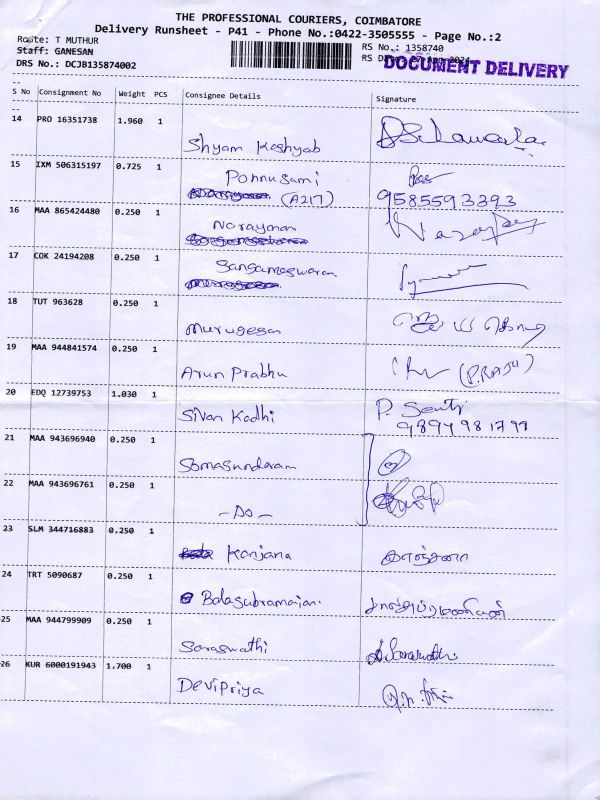 THE PROFESSIONAL COURIERS, COIMBATORE
Delivery Runsheet - P41 - Phone No.:0422-3505555 - Page No.:2
Route: T MUTHUR
RS No.: 1358740
Staff: GANESAN
RS
DOCUMENT DELIVERY
DRS No.: DCJB135874002
S No Consignment No Weight PCS Consignee Details Signature
14 PRO 16351738 1.960 1
Shyam Keshyab
15 IXM 506315197 0.725 1 Ponnusami
(A217) 9585593393
16 MAA 865424480 0.250 1 Narayanan
17 COK 24194208 0.250 1 Sangameswaran
18 TUT 963628 0.250 1
Murugesan
19 MAA 944841574 0.250 1
Arun Prabhu (P.RAJU)
20 EDQ 12739753 1.030 1
Sivan Kadhi P.
21 MAA 943696940 0.250 1
Somasundaram
22 MAA 943696761 0.250 1
- Do -
23 SLM 344716883 0.250 1
Kanjana காஞ்சனா
24 TRT 5090687 0.250 1
Balasubramaian பாலசுப்ரமணியன்
25 MAA 944799909 0.250 1
Saraswathi Saraswathi
26 KUR 6000191943 1.700 1
Devipriya